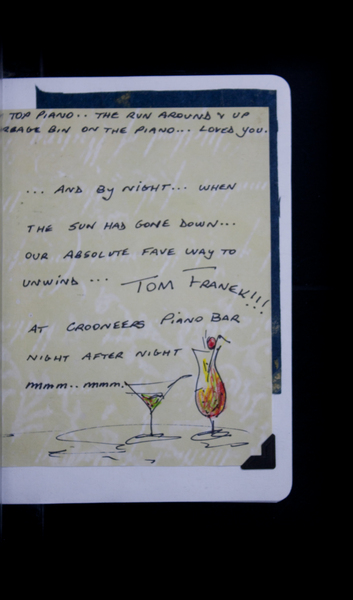 TOP PIANO.. THE RUN AROUND & UP
BAGE BIN ON THE PIANO... LOVED YOU.
... AND By NIGHT... WHEN
THE SUN HAD GONE DOWN...
OUR ABSOLUTE FAVE WAY TO
UNWIND ... TOM FRANEK!!!
AT CROONEERS PIANO BAR
NIGHT AFTER NIGHT
mmm.. mmm.